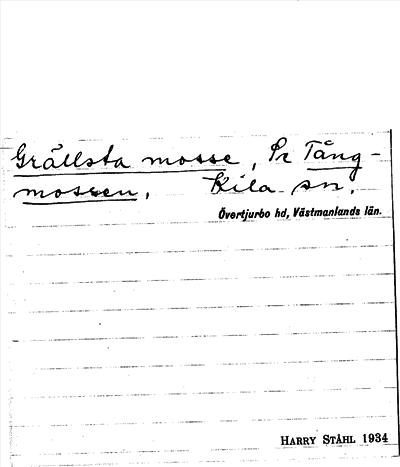 Grällsta mosse, Pr Tång-
mossen, Kila sn,
Övertjurbo hd, Västmanlands län.
HARRY STÅHL 1934